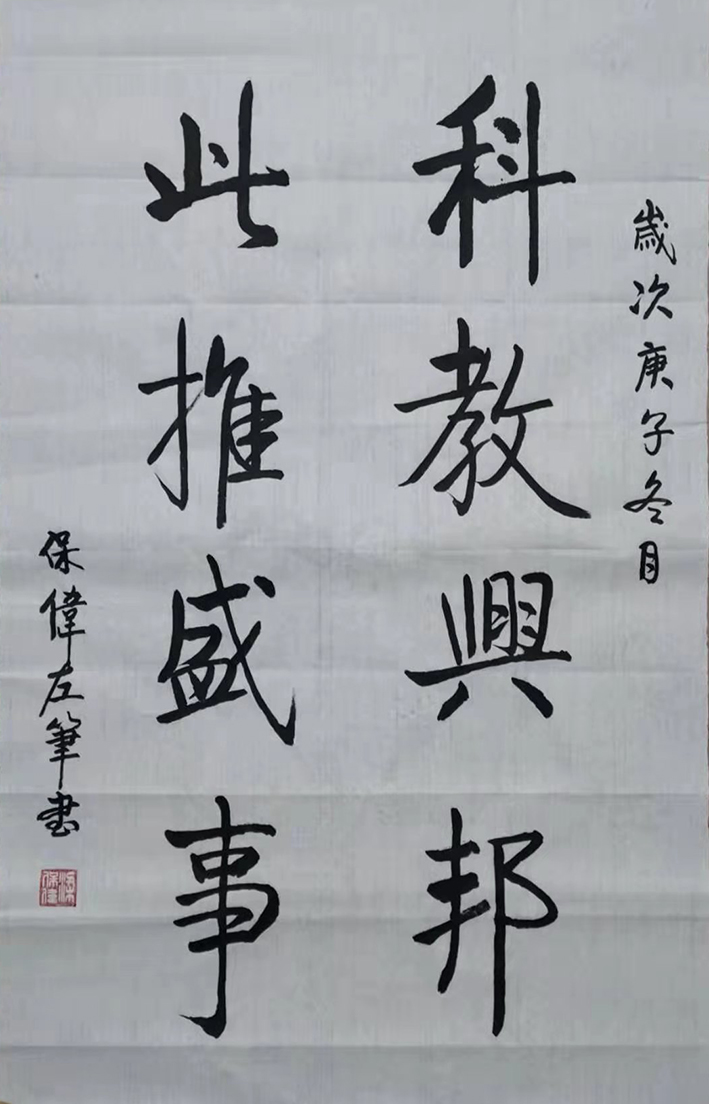 歲次庚子冬月
科教興邦
此推盛事
保偉左筆書